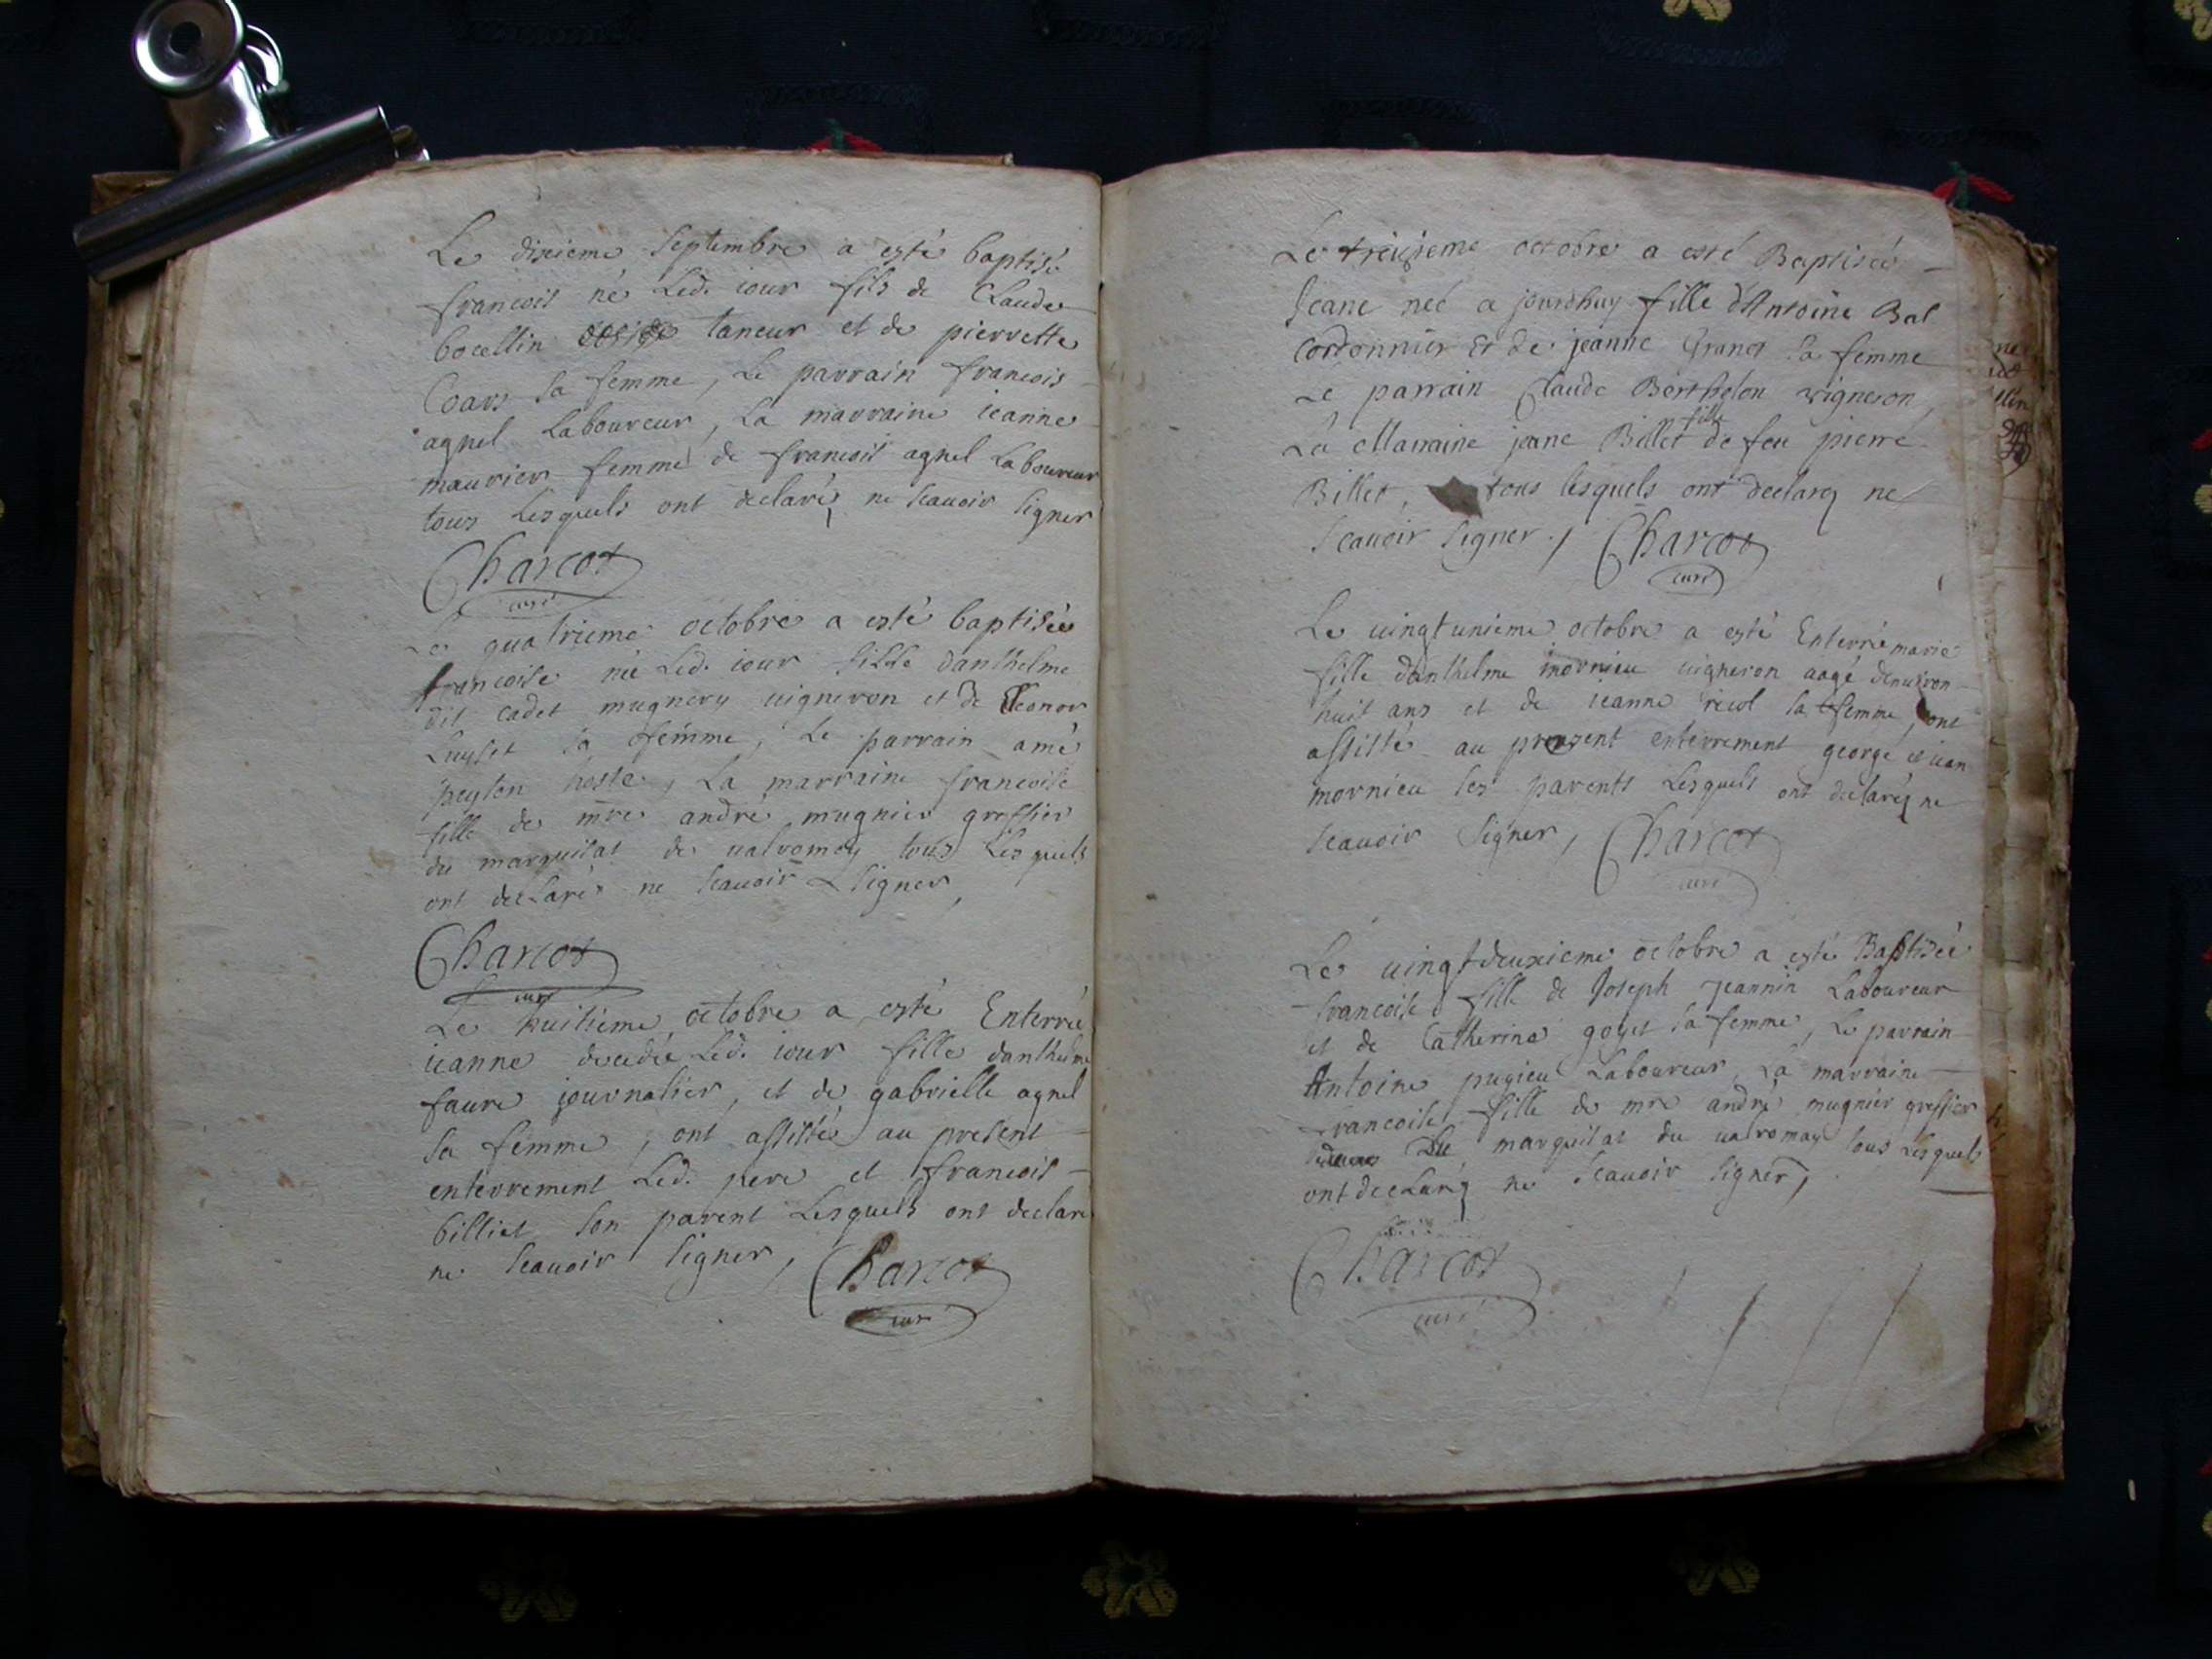 Le dixieme Septembre a esté baptisé
francois né Led. iour fils de Claude
bocellin taneur et de pierrette
Coars sa femme, Le parrain francois
agnel Laboureur, La marraine ieanne
maurier femme de francois agnel Laboureur
tous Lesquels ont declaréz ne scauoir signer
Charcot
curé
Le quatrieme octobre a esté baptisée
francoise née Led. iour fille danthelme
dit cadet mugnery uigneron et de Eleonor
Luyset sa femme, Le parrain amé
peyson hoste, La marraine francoise
fille de mre andré mugnier greffier
du marquisat de ualromey tous Lesquels
ont declarés ne scauoir signer,
Charcot
curé
Le huitieme octobre a esté Enterrée
ieanne decedée Led. iour fille danthelme
faure journalier, et de gabrielle agnel
sa femme, ont assistés au present
enterrement Led. pere et francois
billiet son parent Lesquels ont declaré
ne scauoir signer, Charcot
curé
Le treizieme octobre a esté Baptisée
Jeane neé a jourdhuy fille d'Antoine Bal
Cordonnier Et de jeanne Granet sa femme
Le parrain Claude Berthelon vigneron,
La Marraine jeane Billet fille de feu pierre
Billet, tous lesquels ont declaréz ne
scauoir signer./ Charcot
curé
Le uingtunieme octobre a esté Enterrée marie
fille danthelme mornieu uigneron aagé denuiron
huit ans et de ieanne recol sa femme, ont
assisté au present enterrement george et iean
mornieu ses parents Lesquels ont declaréz ne
scauoir signer, Charcot
curé
Le uingtdeuxieme octobre a esté Baptisée
francoise fille de Joseph jeannin Laboureur
et de Catherine goyet sa femme, Le parrain
Antoine pugieu Laboureur, La marraine
francoise fille de mre andré mugnier greffier
Du marquisat du ualromay tous Lesquels
ont declaréz ne scauoir signer,
Charcot
curé